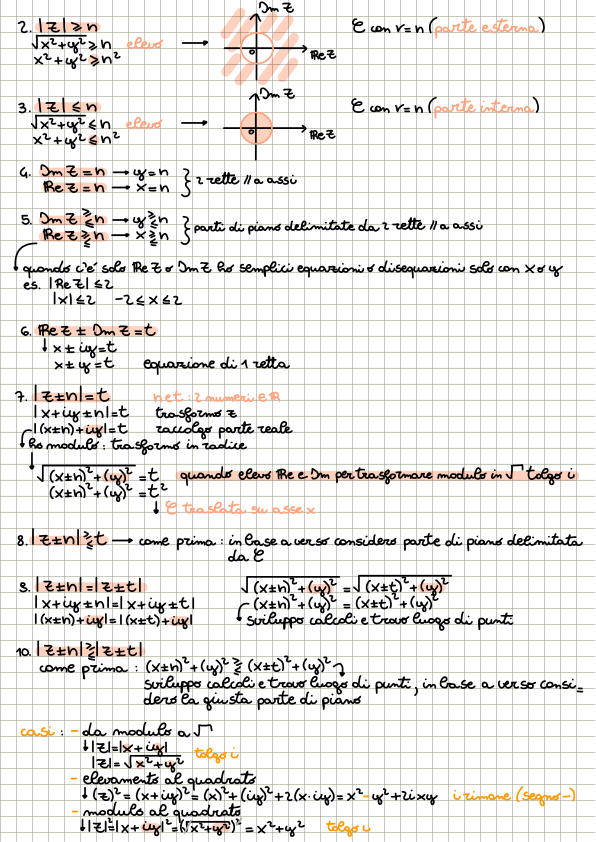 2. |Z| ≥ n
√x²+y² ≥ n elevo →
x²+y² ≥ n²
Im Z
Re Z
0
C con r=n (parte esterna)
3. |Z| ≤ n
√x²+y² ≤ n elevo →
x²+y² ≤ n²
Im Z
Re Z
0
C con r=n (parte interna)
4. Im Z = n → y=n
Re Z = n → x=n } 2 rette // a assi
5. Im Z ≥≤ n → y ≥≤ n
Re Z ≥≤ n → x ≥≤ n } parti di piano delimitate da 2 rette // a assi
quando c'è solo Re Z o Im Z ho semplici equazioni o disequazioni solo con x o y
es. |Re Z| ≤ 2
|x| ≤ 2 -2 ≤ x ≤ 2
6. Re Z ± Im Z = t
↓ x ± iy = t
x ± y = t equazione di 1 retta
7. |Z±n| = t n e t : 2 numeri ∈ R
|x+iy±n| = t trasformo z
|(x±n)+iy| = t raccolgo parte reale
ho modulo : trasformo in radice
√(x±n)²+(y)² = t quando elevo Re e Im per trasformare modulo in √ tolgo i
(x±n)²+(y)² = t²
↓ C traslata su asse x
8. |Z±n| ≥≤ t → come prima : in base a verso considero parte di piano delimitata
da C
9. |Z±n| = |Z±t|
|x+iy±n| = |x+iy±t|
|(x±n)+iy| = |(x±t)+iy|
√(x±n)²+(y)² = √(x±t)²+(y)²
(x±n)²+(y)² = (x±t)²+(y)²
sviluppo calcoli e trovo luogo di punti
10. |Z±n| ≥≤ |Z±t|
come prima : (x±n)²+(y)² ≥≤ (x±t)²+(y)²
sviluppo calcoli e trovo luogo di punti, in base a verso consi=
dero la giusta parte di piano
casi : - da modulo a √
↓ |Z| = |x+iy|
|Z| = √x²+y² tolgo i
- elevamento al quadrato
↓ (Z)² = (x+iy)² = (x)²+(iy)²+2(x·iy) = x²-y²+2ixy i rimane (segno -)
- modulo al quadrato
↓ |Z|² = |x+iy|² = (√x²+y²)² = x²+y² tolgo i